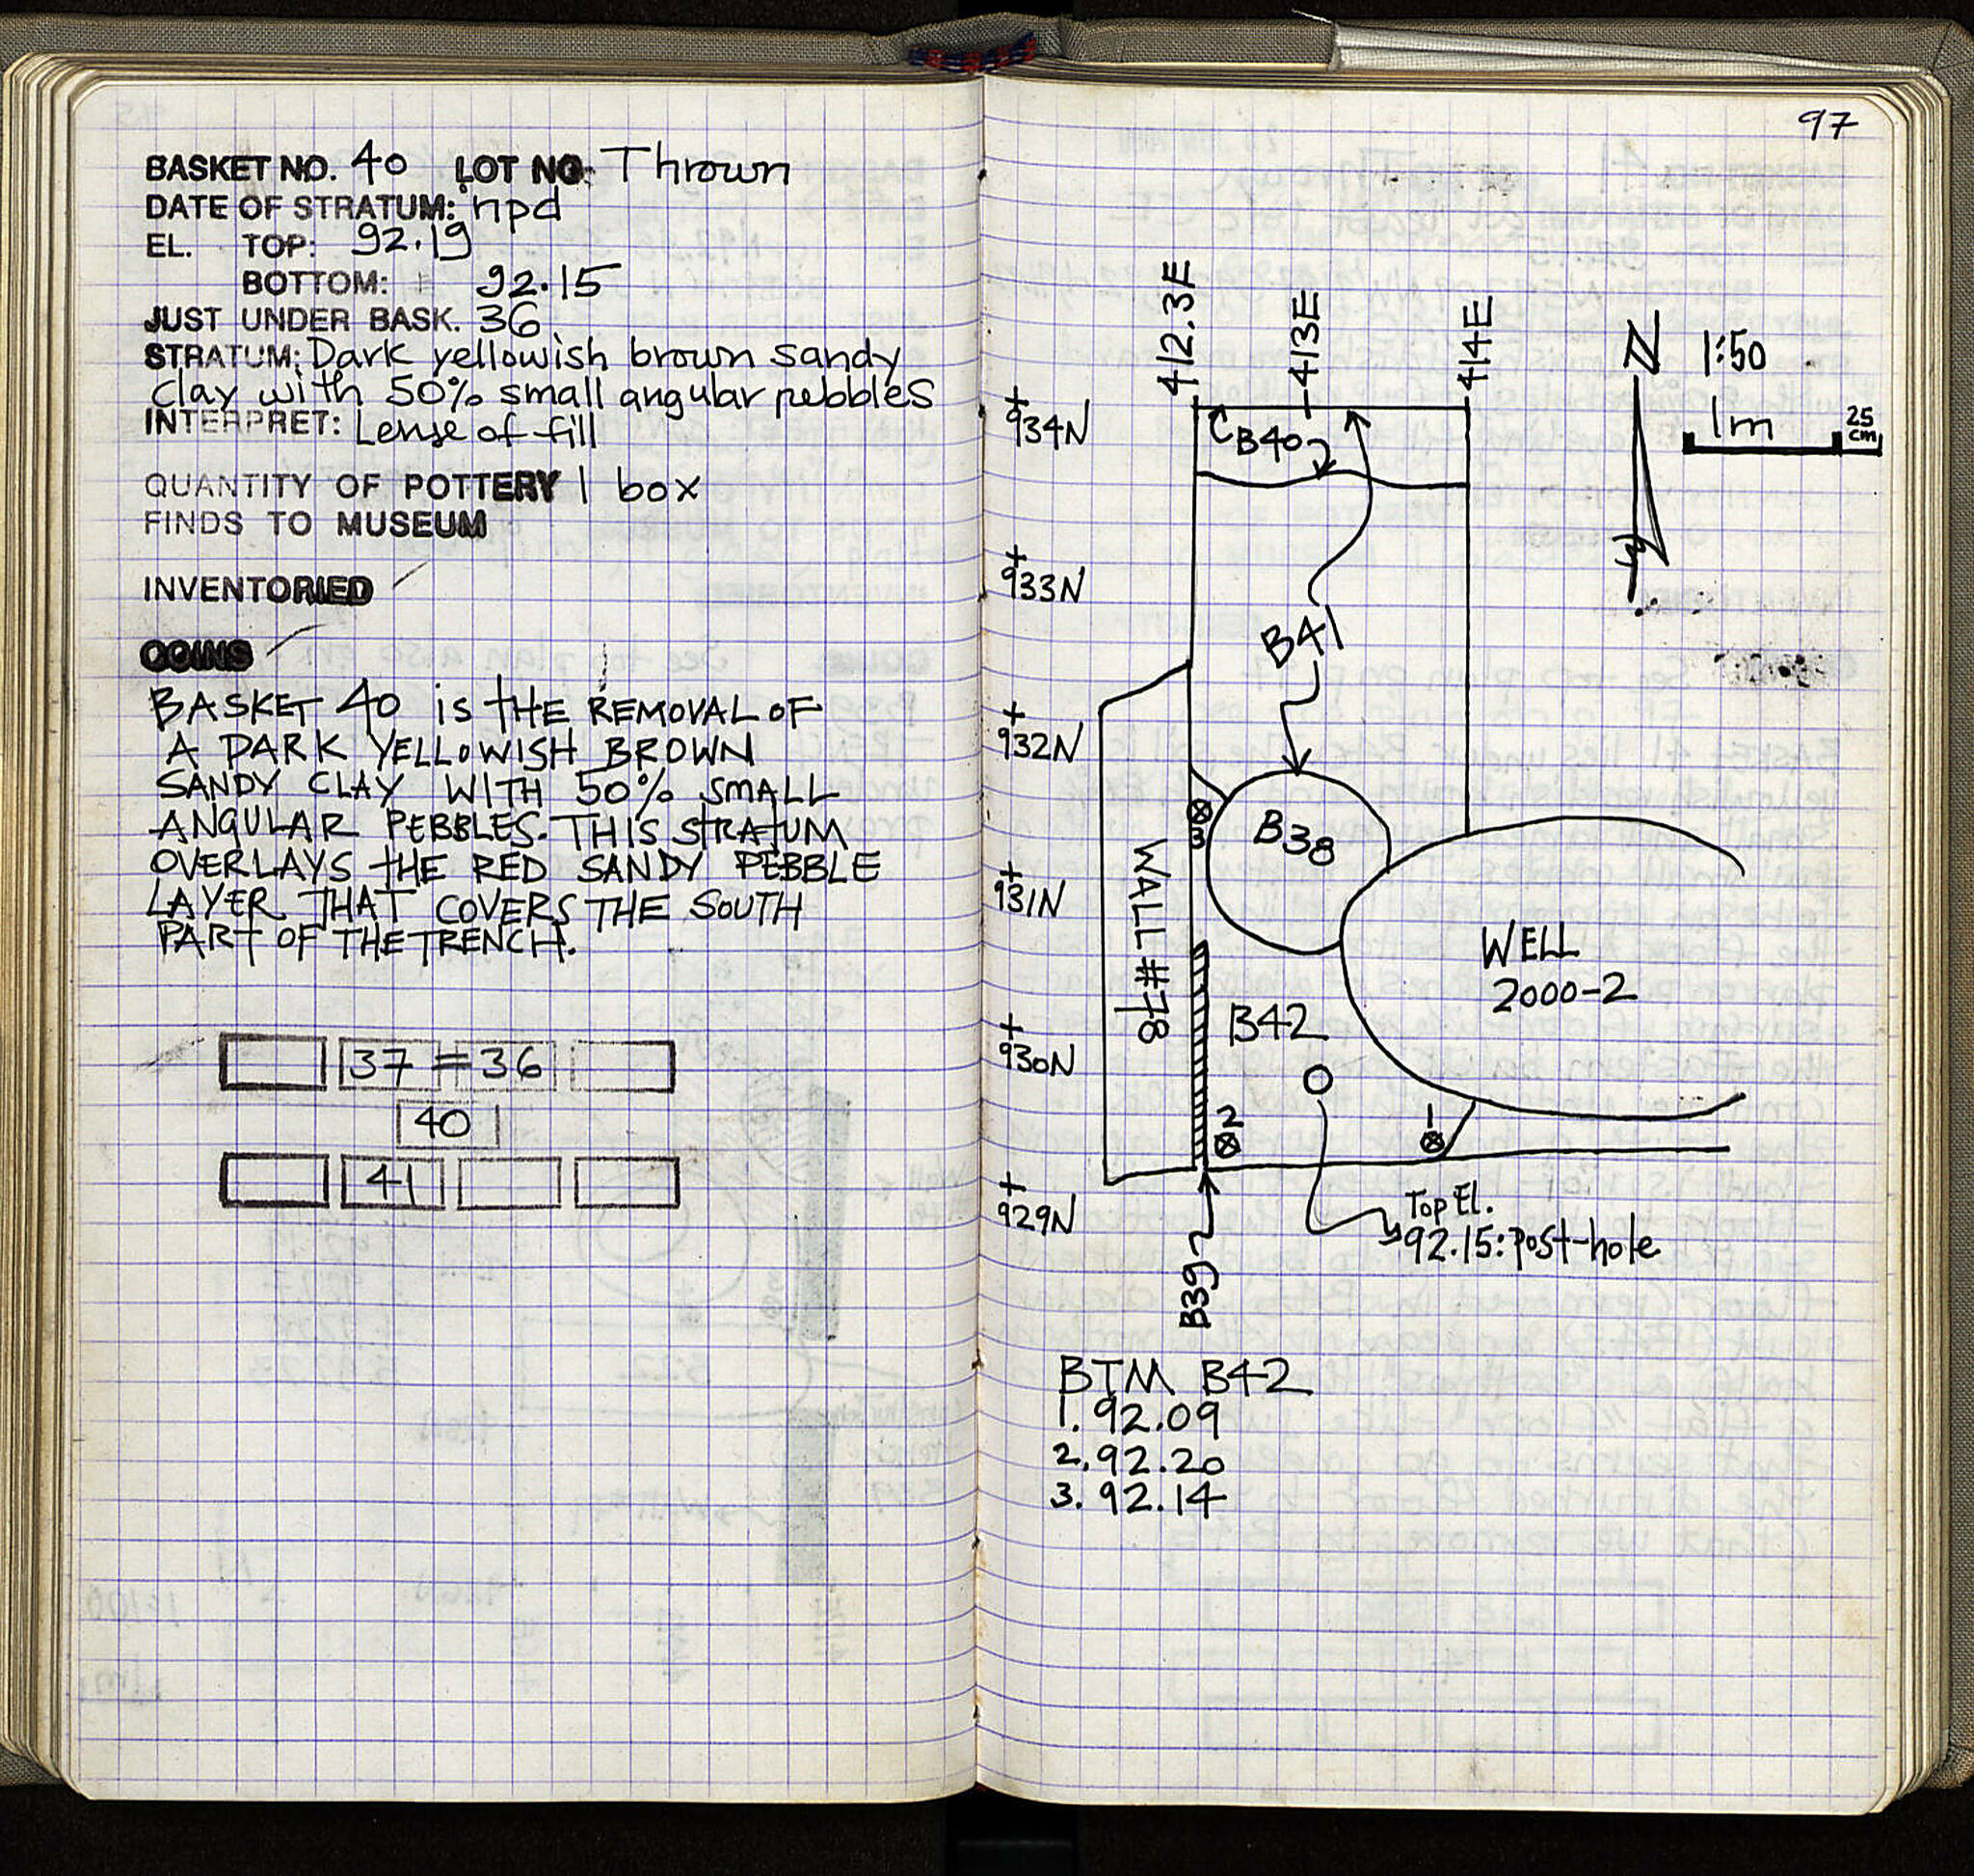 BASKET NO. 40 LOT NO: Thrown
DATE OF STRATUM: npd
EL. TOP: 92.19
BOTTOM: 92.15
JUST UNDER BASK. 36
STRATUM: Dark yellowish brown sandy
clay with 50% small angular pebbles
INTERPRET: Lense of fill
QUANTITY OF POTTERY 1 box
FINDS TO MUSEUM
INVENTORIED
COINS
BASKET 40 is tHE REMOVAL OF
A DARK YELLOWISH BROWN
SANDY CLAY WITH 50% SMALL
ANGULAR PEBBLES. THIS STRATUM
OVERLAYS tHE RED SANDY PEBBLE
LAYER THAT COVERS THE SOUTH
PART OF THE TRENCH.
37 = 36
40
41
97
412.3E
413E
414E
N 1:50
1m 25 cm
934N
B40
933N
B41
932N
3
B38
WALL #78
931N
WELL
2000-2
B42
930N
2
1
929N
Top El.
92.15: post-hole
B39
BTM B42
1. 92.09
2. 92.20
3. 92.14